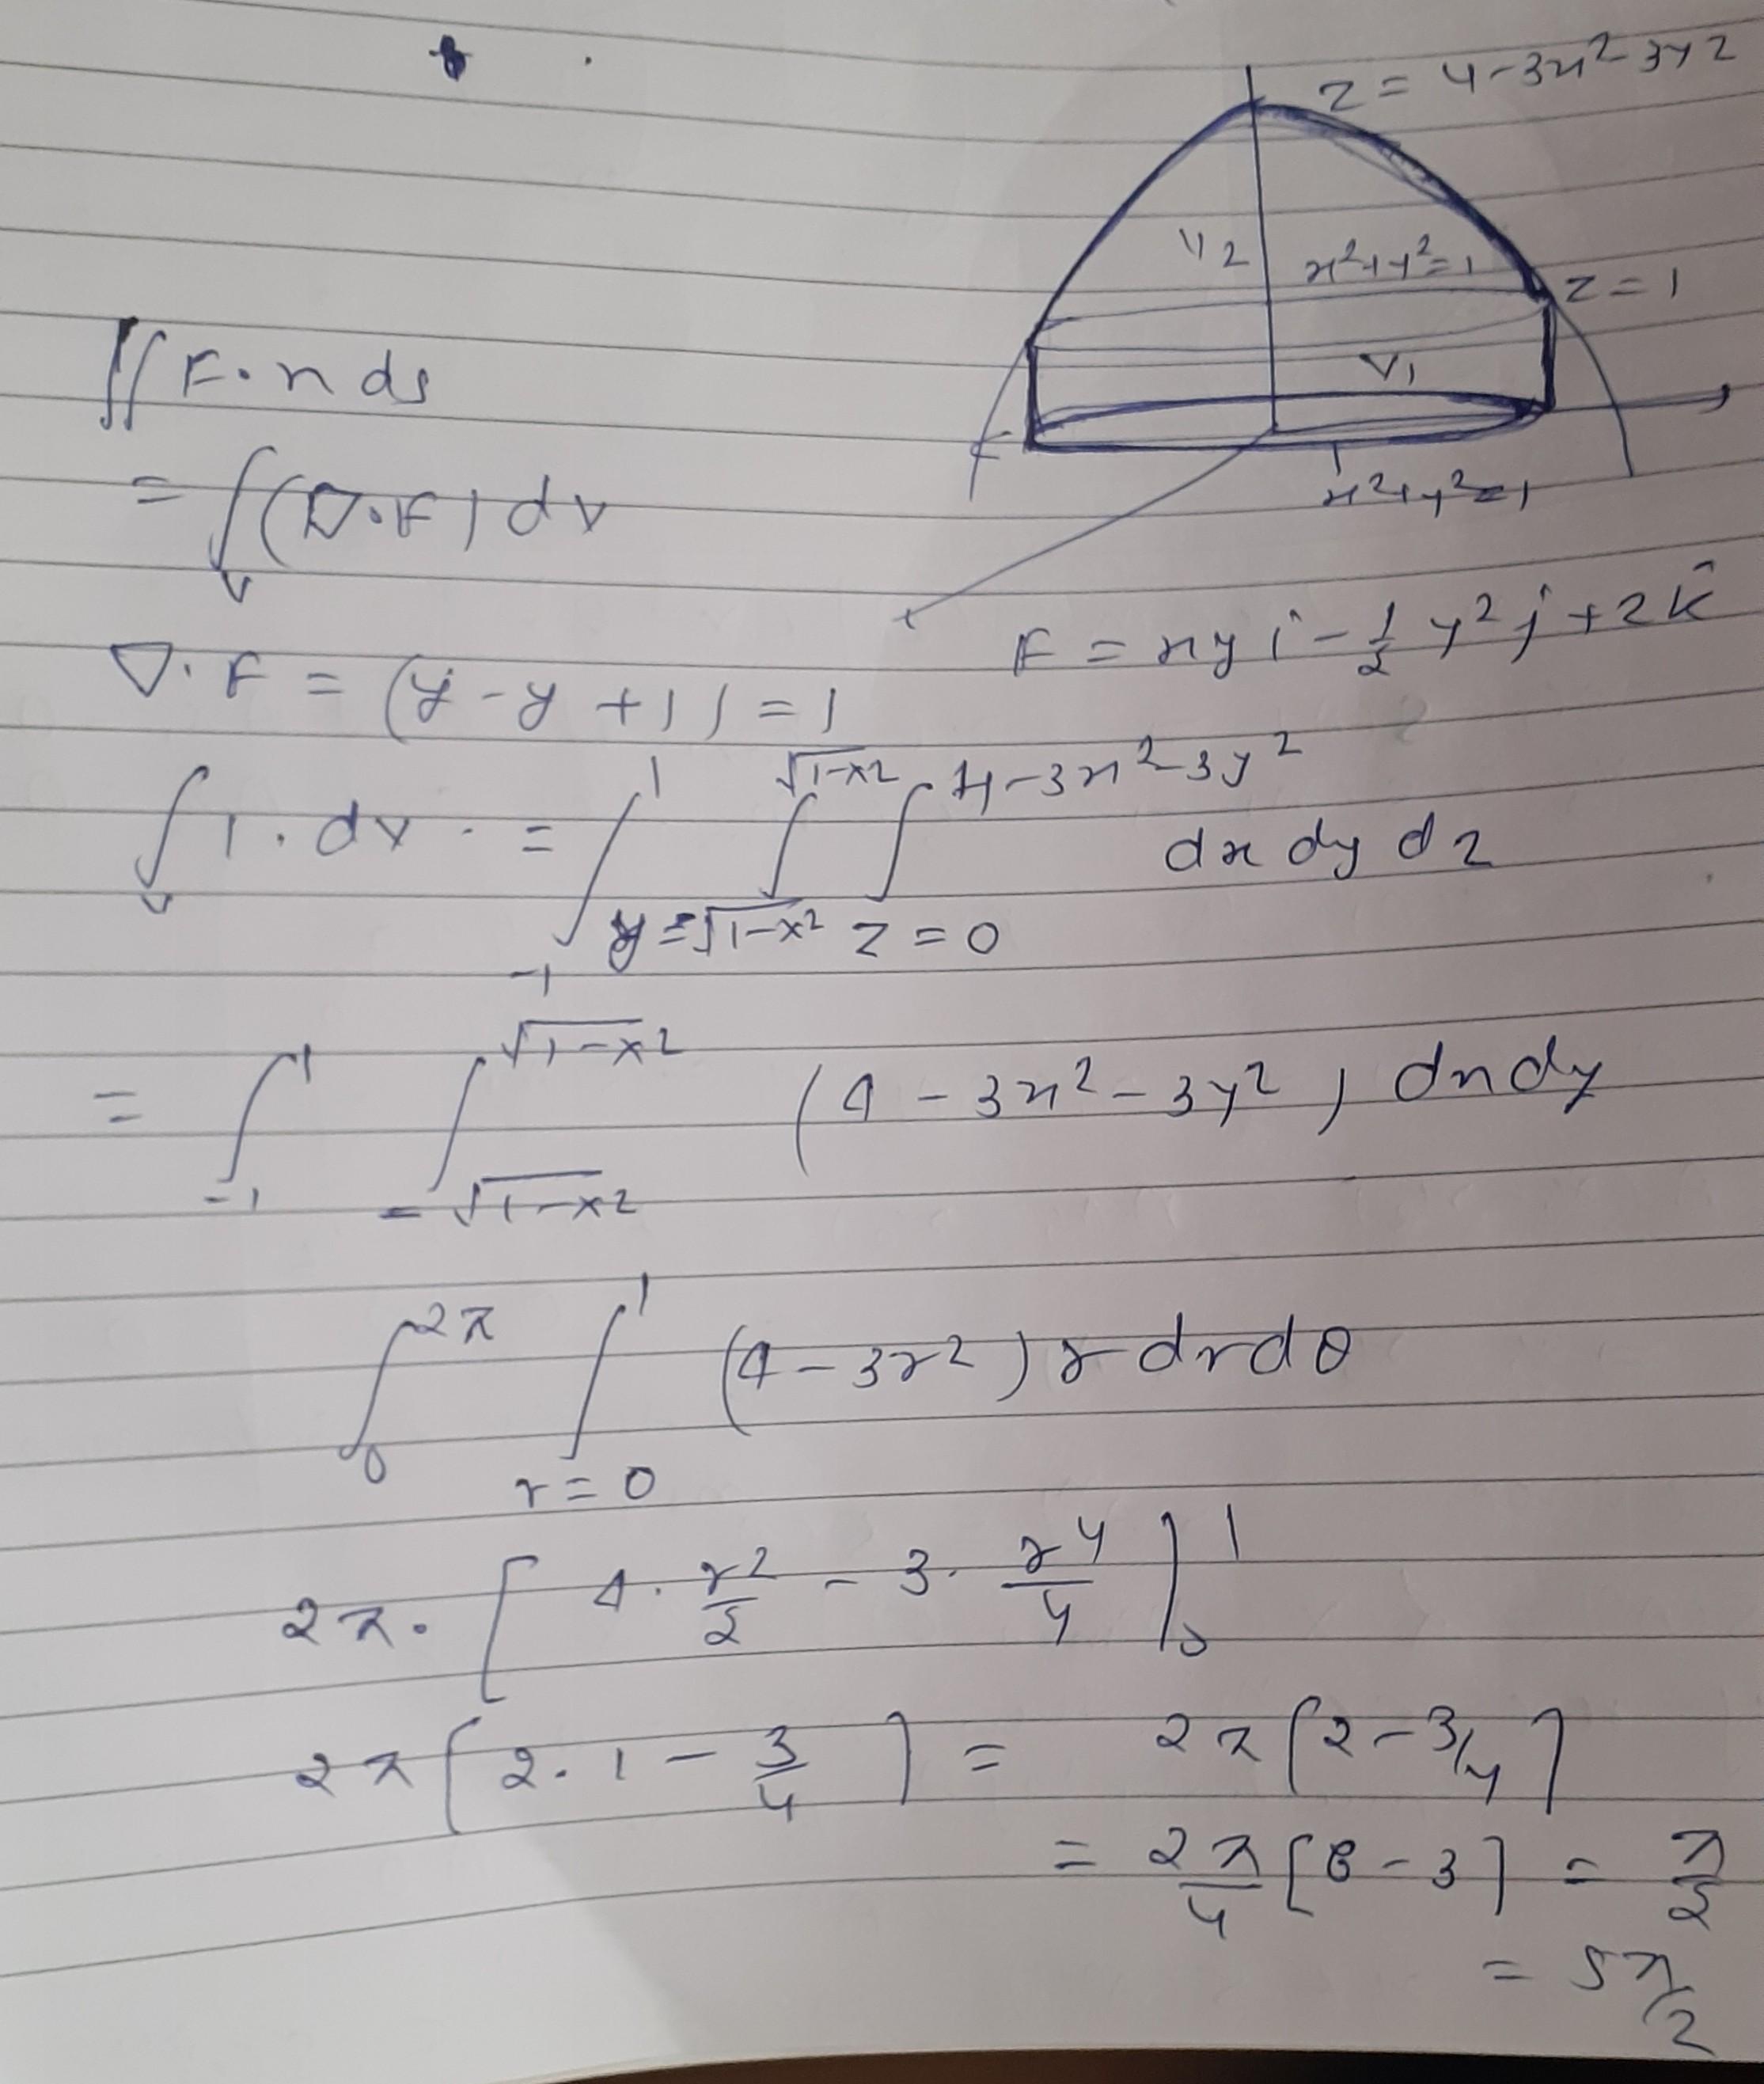 z = 4-3x²-3y²
V2
x²+y²=1
z=1
V1
x²+y²=1
∬ F·n ds
= ∫_V (∇·F) dv
F = xy i - 1/2 y² j + zk̂
∇·F = (y - y + 1) = 1
∫_V 1·dv = ∫_{-1}^{1} ∫_{y=-√1-x²}^{√1-x²} ∫_{z=0}^{4-3x²-3y²} dx dy dz
= ∫_{-1}^{1} ∫_{-√1-x²}^{√1-x²} (4 - 3x² - 3y²) dx dy
∫_0^{2π} ∫_{r=0}^{1} (4-3r²) r dr dθ
2π·[4·r²/2 - 3·r⁴/4]_0^1
2π[2·1 - 3/4] = 2π[2-3/4]
= 2π/4 [8-3] = π/2
= 5π/2